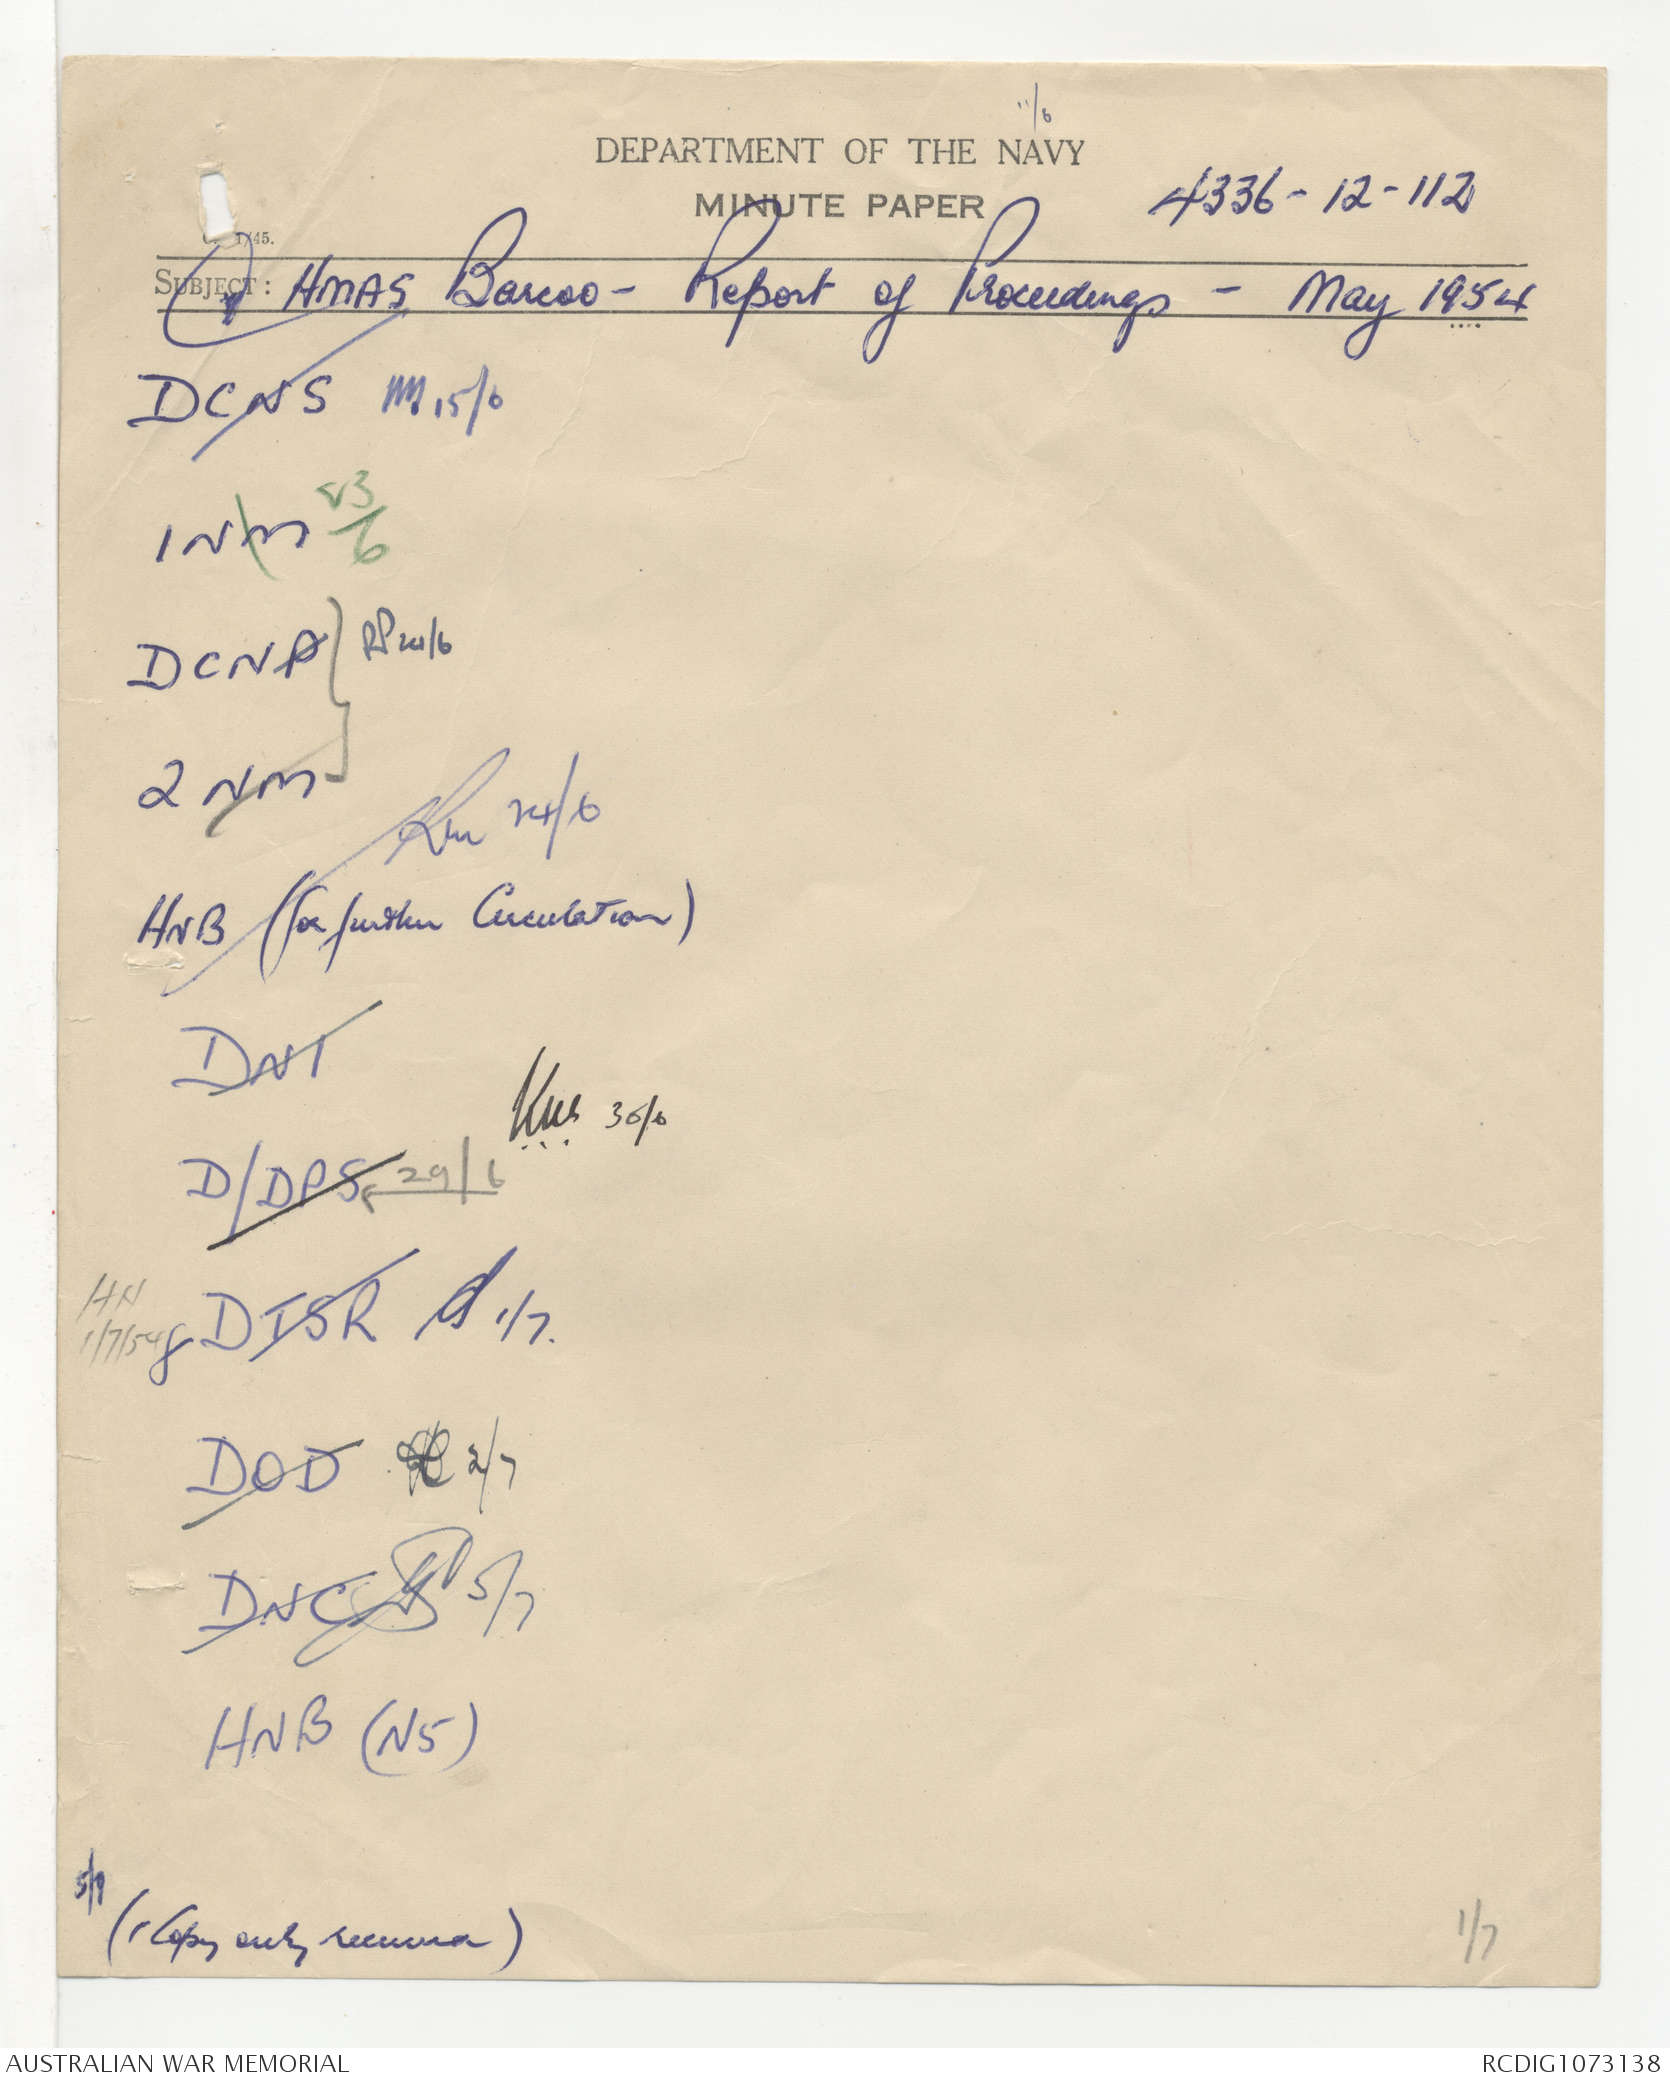 11/6
DEPARTMENT OF THE NAVY
MINUTE PAPER
4336-12-112
1/45.
SUBJECT: HMAS Barcoo - Report of Proceedings - May 1954
DCNS 15/6
1NM 23/6
DCNP 24/6
2NM
24/6
HNB (for further Circulation)
DNI
30/6
D/DPS 29/6
HN
1/7/54
DTSR 1/7.
DOD 2/7
DNC 5/7
HNB (N5)
(1 Copy only received)
1/7
AUSTRALIAN WAR MEMORIAL
RCDIG1073138